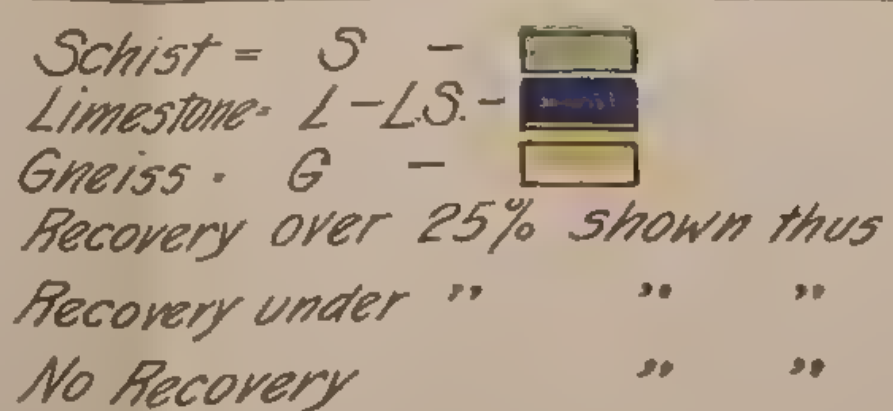 Schist = S -
Limestone = L - L.S. -
Gneiss - G -
Recovery over 25% shown thus
Recovery under " " "
No Recovery " "